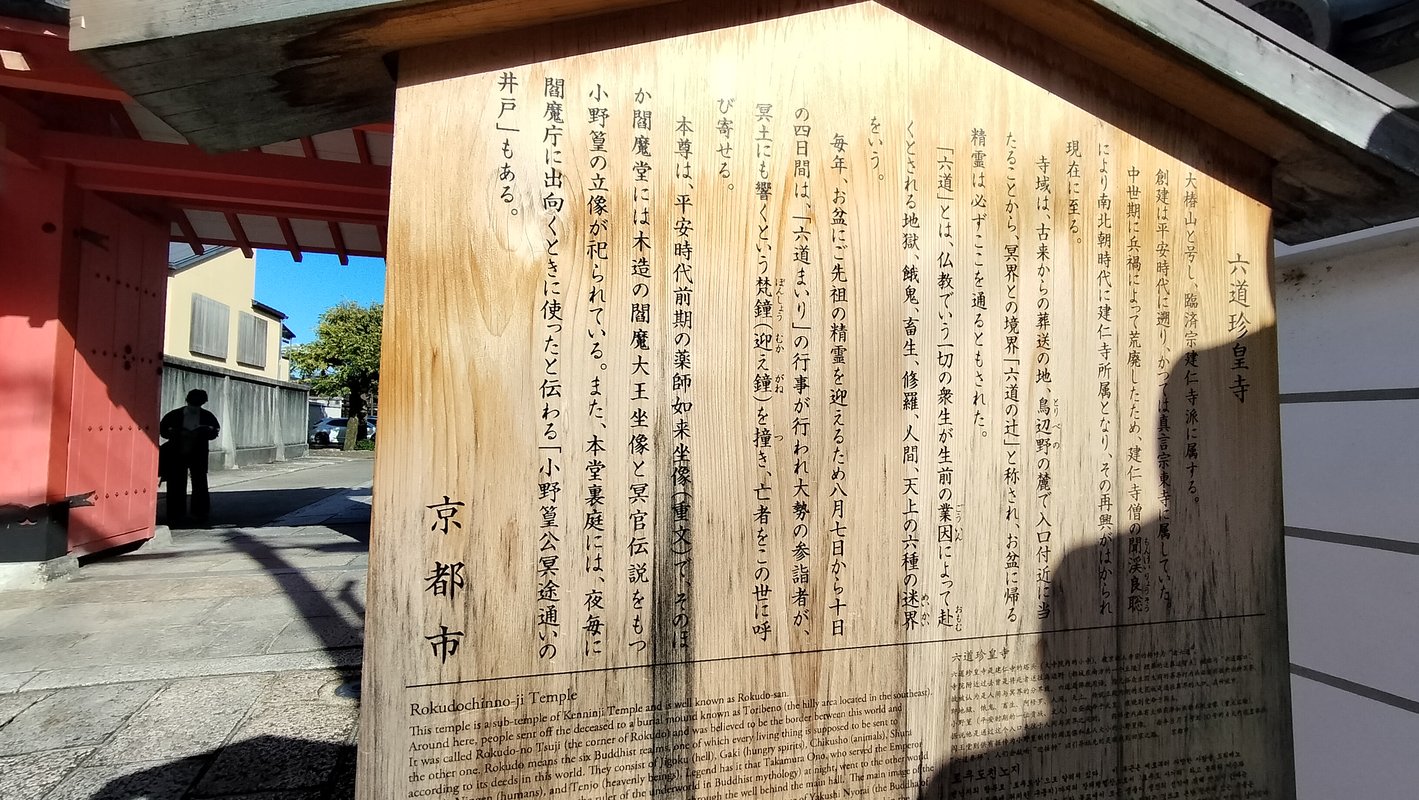 六道珍皇寺
大椿山と号し、臨済宗建仁寺派に属する。
創建は平安時代に遡り、かつては真言宗東寺に属していた。
中世期に兵禍によって荒廃したため、建仁寺僧の聞溪良聡
により南北朝時代に建仁寺所属となり、その再興がはかられ
現在に至る。
寺域は、古来からの葬送の地、鳥辺野の麓で入口付近に当
たることから、冥界との境界「六道の辻」と称され、お盆に帰る
精霊は必ずここを通るともされた。
「六道」とは、仏教でいう一切の衆生が生前の業因によって赴
くとされる地獄、餓鬼、畜生、修羅、人間、天上の六種の迷界
をいう。
毎年、お盆にご先祖の精霊を迎えるため八月七日から十日
の四日間は、「六道まいり」の行事が行われ大勢の参詣者が、
冥土にも響くという梵鐘(迎え鐘)を撞き、亡者をこの世に呼
び寄せる。
本尊は、平安時代前期の薬師如来坐像(重文)で、そのほ
か閻魔堂には木造の閻魔大王坐像と冥官伝説をもつ
小野篁の立像が祀られている。また、本堂裏庭には、夜毎に
閻魔庁に出向くときに使ったと伝わる「小野篁公冥途通いの
井戸」もある。
京都市
Rokudochinno-ji Temple
This temple is a sub-temple of Kenninji Temple and is well known as Rokudo-san.
Around here, people sent off the deceased to a burial mound known as Toribeno (the hilly area located in the southeast).
It was called Rokudo-no Tsuji (the corner of Rokudo) and was believed to be the border between this world and
the other one. Rokudo means the six Buddhist realms, one of which every living thing is supposed to be sent to
according to its deeds in this world. They consist of Jigoku (hell), Gaki (hungry spirits), Chikusho (animals), Shura
Ningen (humans), and Tenjo (heavenly beings). Legend has it that Takamura Ono, who served the Emperor
the ruler of the underworld in Buddhist mythology) at night, went to the other world
through the well behind the main hall. The main image of the
of Yakushi Nyorai (the Buddha of
六道珍皇寺
로쿠도친노지